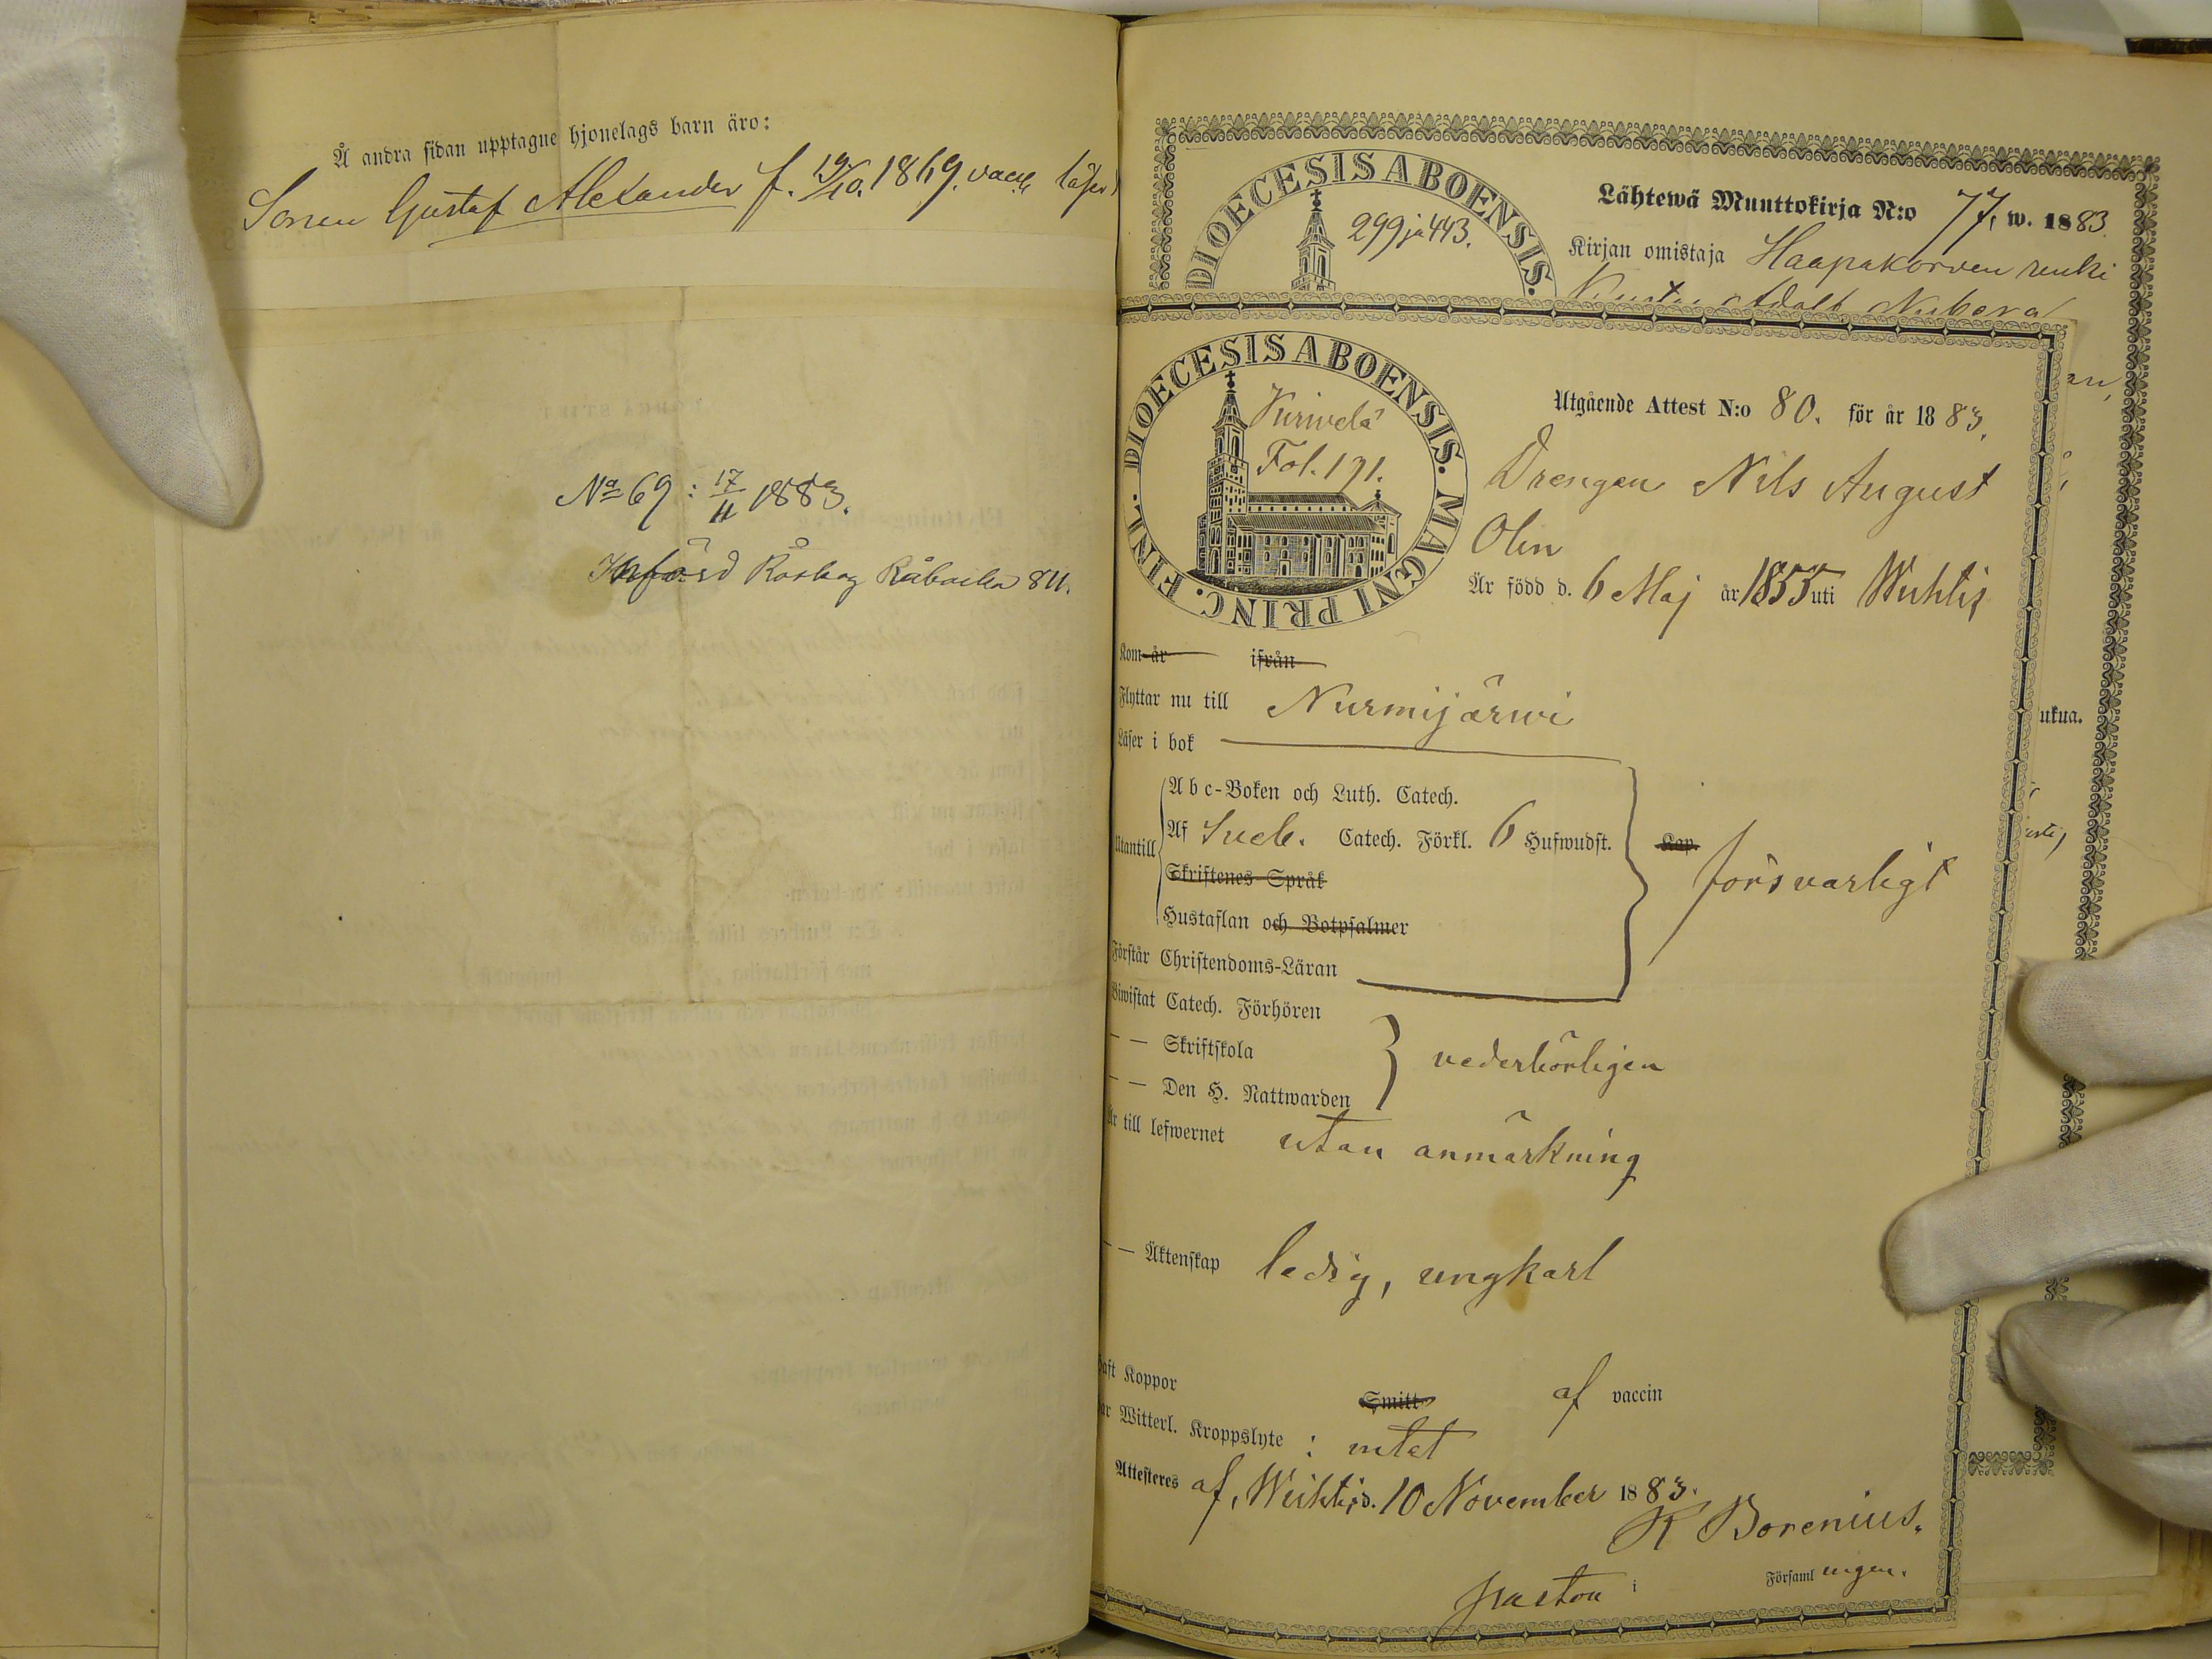 Å andra sidan upptagne hjonelags barn äro:
Sonen Gustaf Alexander f. 19/10. 1869. vacc. läser
No 69: 17/11 1883.
Införd Råskog Råbacka 84.
DIOECESIS ABOENSIS.
299 ja 443.
Lähtewä Muuttokirja N:o 77, w. 1883.
Kirjan omistaja Haapakorven renki
Adolf
DIOECESIS ABOENSIS. MAGNI PRINC. FINL.
Kurivelä
Fol. 191.
Utgående Attest N:o 80. för år 1883.
Drengen Nils August
Olin
Är född d. 6 Maj år 1855 uti Wichtis
Kom år ifrån
Flyttar nu till Nurmijärwi
Läser i bok
Utantill
A b c-Boken och Luth. Catech.
Af Sveb. Catech. Förkl. 6 Hufwudst.
Skriftenes Språk
Hustaflan och Botpsalmer
Kap.
försvarligt
Förstår Christendoms-Läran
Biwistat Catech. Förhören
— — Skriftskola
— — Den H. Nattwarden
vederbörligen
Är till lefwernet utan anmärkning
— — Äktenskap ledig, ungkarl
Haft Koppor Smitt af vaccin
Har Witterl. Kroppslyte : intet
Attesteres af, Wichtis d. 10 November 1883.
K Borenius.
pastor i Församlingen.
ukua.